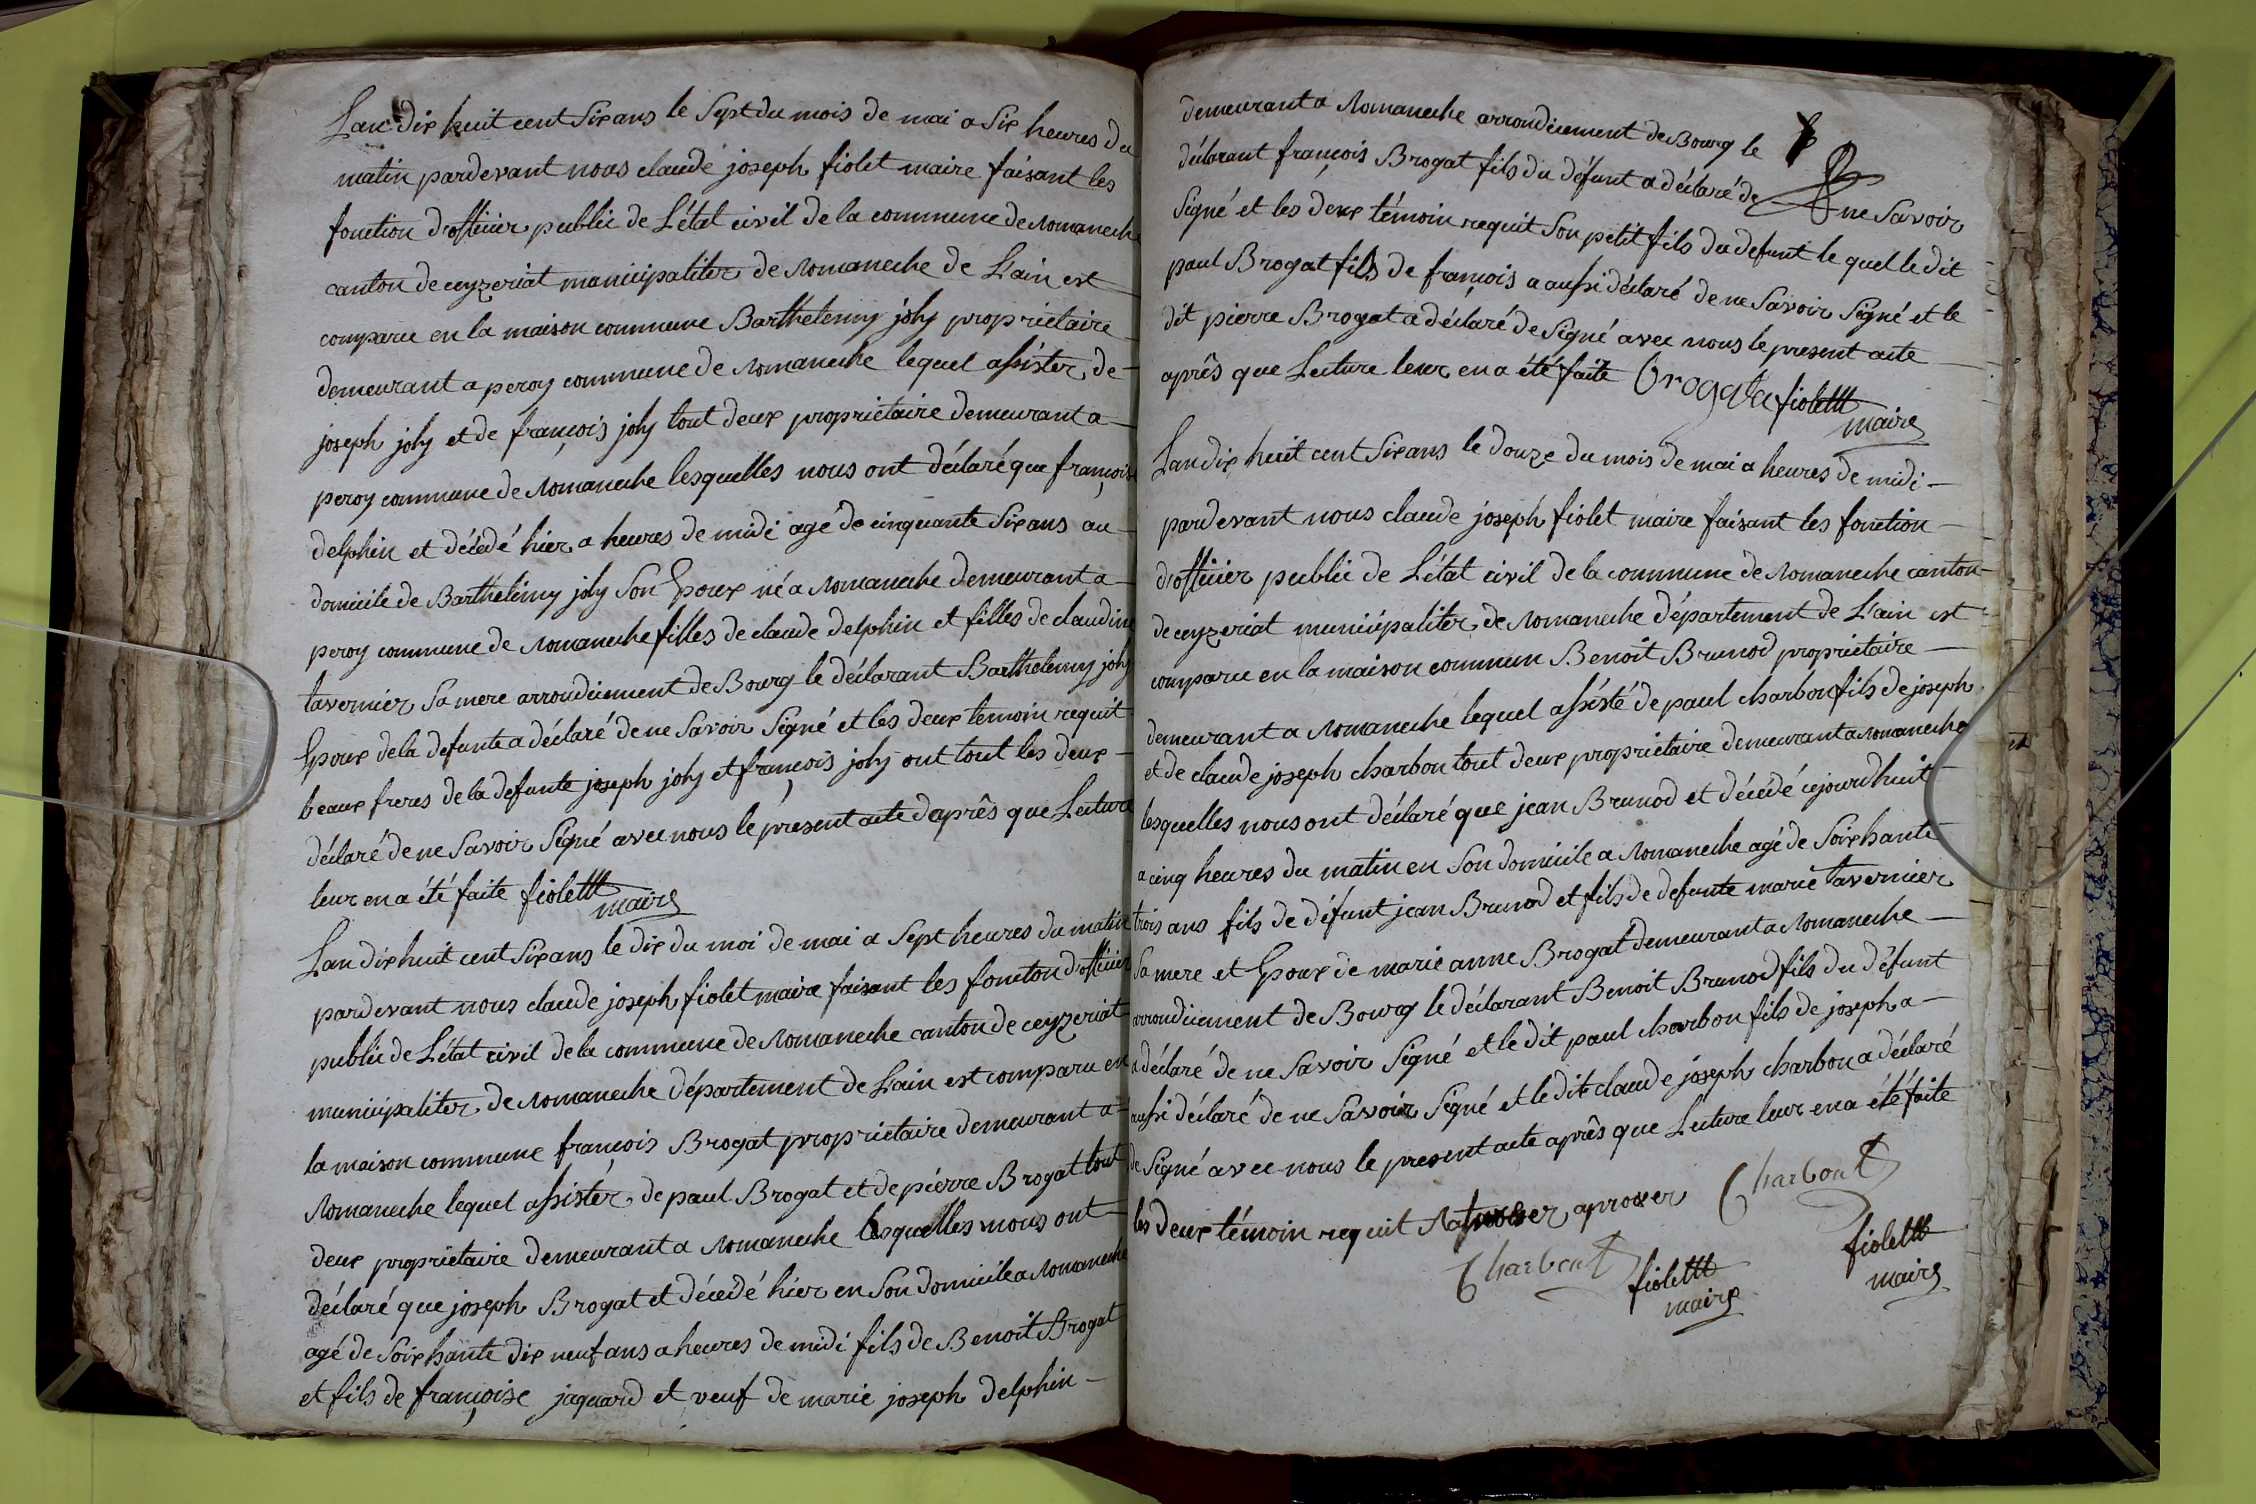 Lan dix huit cent Six ans le Sept du mois de mai a Six heures du
matin pardevant nous claude joseph fiolet maire faisant les
fonction d'officier public de L'état civil de la commune de Romaneche
canton de ceyzeriat municipaliter de Romaneche de L'ain est
comparu en la maison commune Barthelemy joly proprietaire
demeurant a peroy commune de Romaneche lequel assister de
joseph joly et de françois joly tout deux proprietaire demeurant a
peroy commune de Romaneche lesquelles nous ont déclaré que françoise
delphin et décédé hier a heures de midi agé de cinquante Six ans au
domicile de Barthelemy joly Son Epoux né a Romaneche demeurant a
peroy commune de Romaneche filles de claude delphin et filles de claudine
tavernier Sa mere arrondicement de Bourg le déclarant Barthelemy joly
Epoux de la defunte a déclaré de ne Savoir Signé et les deux temoin requit
beaux freres de la defunte joseph joly et françois joly ont tout les deux
déclaré de ne Savoir Signé avec nous le present acte daprês que Lecture
leur en a été faite fiolettt
maire
Lan dix huit cent Six ans le dix du moi de mai a Sept heures du matin
pardevant nous claude joseph fiolet maire faisant les foncton d'officier
public de L'état civil de la commune de Romaneche canton de ceyzeriat
municipaliter de Romaneche département de L'ain est comparu en
la maison commune françois Brogat proprietaire demeurant a
Romaneche lequel assister de paul Brogat et de piérre Brogat tout
deux proprietaire demeurant a Romaneche lesquelles nous ont
déclaré que joseph Brogat et décédé hier en Son domicile a Romaneche
agé de Soixhante dix neuf ans a heures de midi fils de Benoit Brogat
et fils de françoise jaquard et veuf de marie joseph delphin
demeurant a Romaneche arrondicement de Bourg le
déclarant françois Brogat fils du défunt a déclaré de ne Savoir
Signé et les deux témoin requit Son petit fils du defunt le quel le dit
paul Brogat fils de françois a aussi déclaré de ne Savoir Signé et le
dit pierre Brogat a déclaré de Signé avec nous le present acte
aprês que Lecture leur en a été faite Brogat fiolettt
maire
Lan dix huit cent Six ans le douze du mois de mai a heures de midi
pardevant nous claude joseph fiolet maire faisant les fonction
d'officier public de L'état civil de la commune de Romaneche canton
de ceyzeriat municipaliter de Romaneche département de L'ain est
comparu en la maison commun Benoit Brunod proprietaire
demeurant a Romaneche lequel assisté de paul charbon fils de joseph
et de claude joseph charbon tout deux proprietaire demeurant a Romaneche
lesquelles nous ont déclaré que jean Brunod et décédé cejourdhuit
a cinq heures du matin en Son domicile a Romaneche agé de Soixhante
trois ans fils de défunt jean Brunod et fils de defunte marie tavernier
Sa mere et Epoux de marie anne Brogat demeurant a Romaneche
arrondicement de Bourg le déclarant Benoit Brunod fils du défunt
a déclaré de ne Savoir Signé et le dit paul charbon fils de joseph a
aussi déclaré de ne Savoir Signé et le dit claude joseph charbon a déclaré
de Signé avec nous le present acte aprês que Lecture leur en a été faite
les deux témoin requit aprover Charbont
Charbont fiolettt maire
fiolettt maire